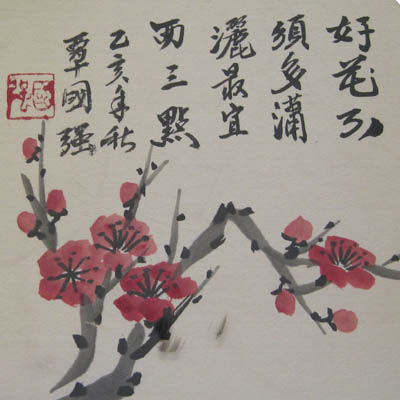 好花不
須多瀟
灑最宜
两三點
乙亥年秋
覃國强